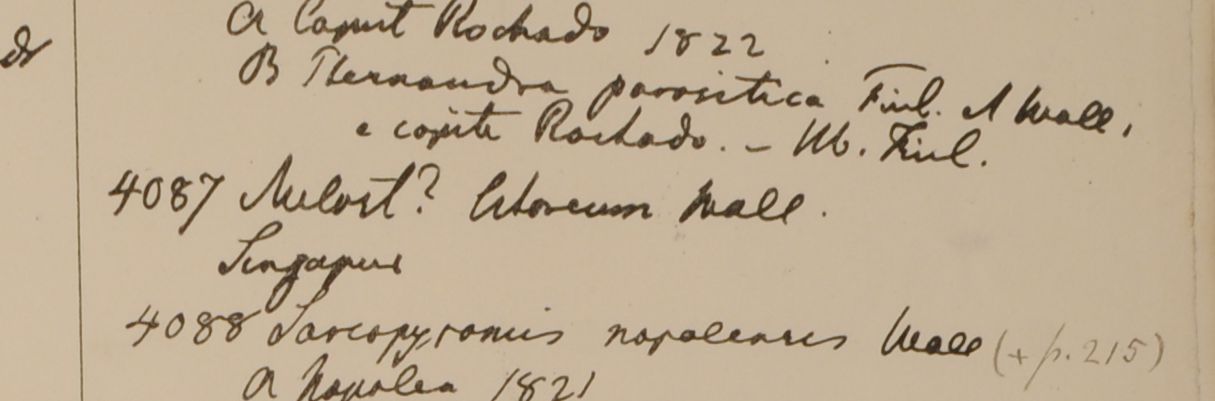 A Caput Rochado 1822
B Hernandra parasitica Finl. A Wall.
e capite Rochado. – Hb. Finl.
4087 Melast? Wall.
Singapur
4088 Sarcopyramis napalensis Wall (+ p. 215)
A Napalea 1821